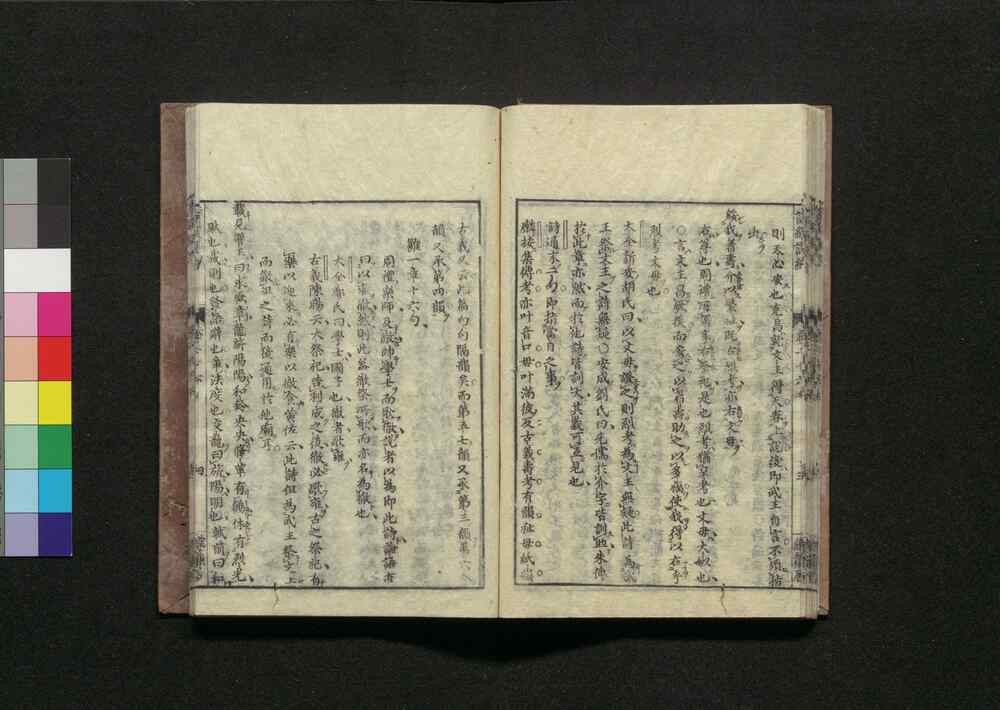 則天心安也克昌文王得天後即武王自言不須拈
出
綏我眉壽介以繁祉既右烈考亦右文母
右尊也周禮所謂享右祭祀是也烈考猶皇考也文母大姒也
○言文王昌厥後而安之以眉壽助之以多福使我得以右于
烈考文母也
大全新安胡氏曰以文母證之則烈考為文王無疑此詩為武
王祭文王之詩無疑○安成劉氏曰毛傳於介字皆訓助朱傳
於此章亦然而於他詩皆訓大其義可互見也
詩通末二句即指當日之事
麟按集傳考亦叶音口母叶滿彼反古義壽考有韻祉母紙韻
古義又云此篇句句隔韻矣而第五七韻又承第三韻第六八
韻又承第四韻
雝一章十六句
周禮樂師及徹帥學士而歌徹說者以為即此詩論語亦
曰以雍徹然則此蓋徹祭所歌而亦名為徹也
大全鄭氏曰學士國子也徹者歌雍
古義陳暘云大祭祀告利成之後徹必歌雍古之祭祀有
樂以迎來必有樂以徹食黃佐云此詩但為武王祭文王
而徹俎之詩而後通用於他廟耳
載見辟王曰求厥章龍旂陽陽和鈴央央鞗革有鶬休有烈光
賦也載則也發語辭也章法度也交龍曰旂陽明也軾前曰和